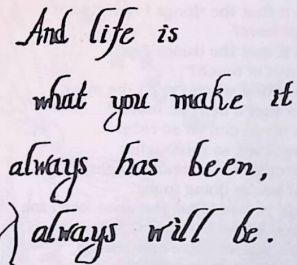 And life is
what you make it
always has been,
always will be.